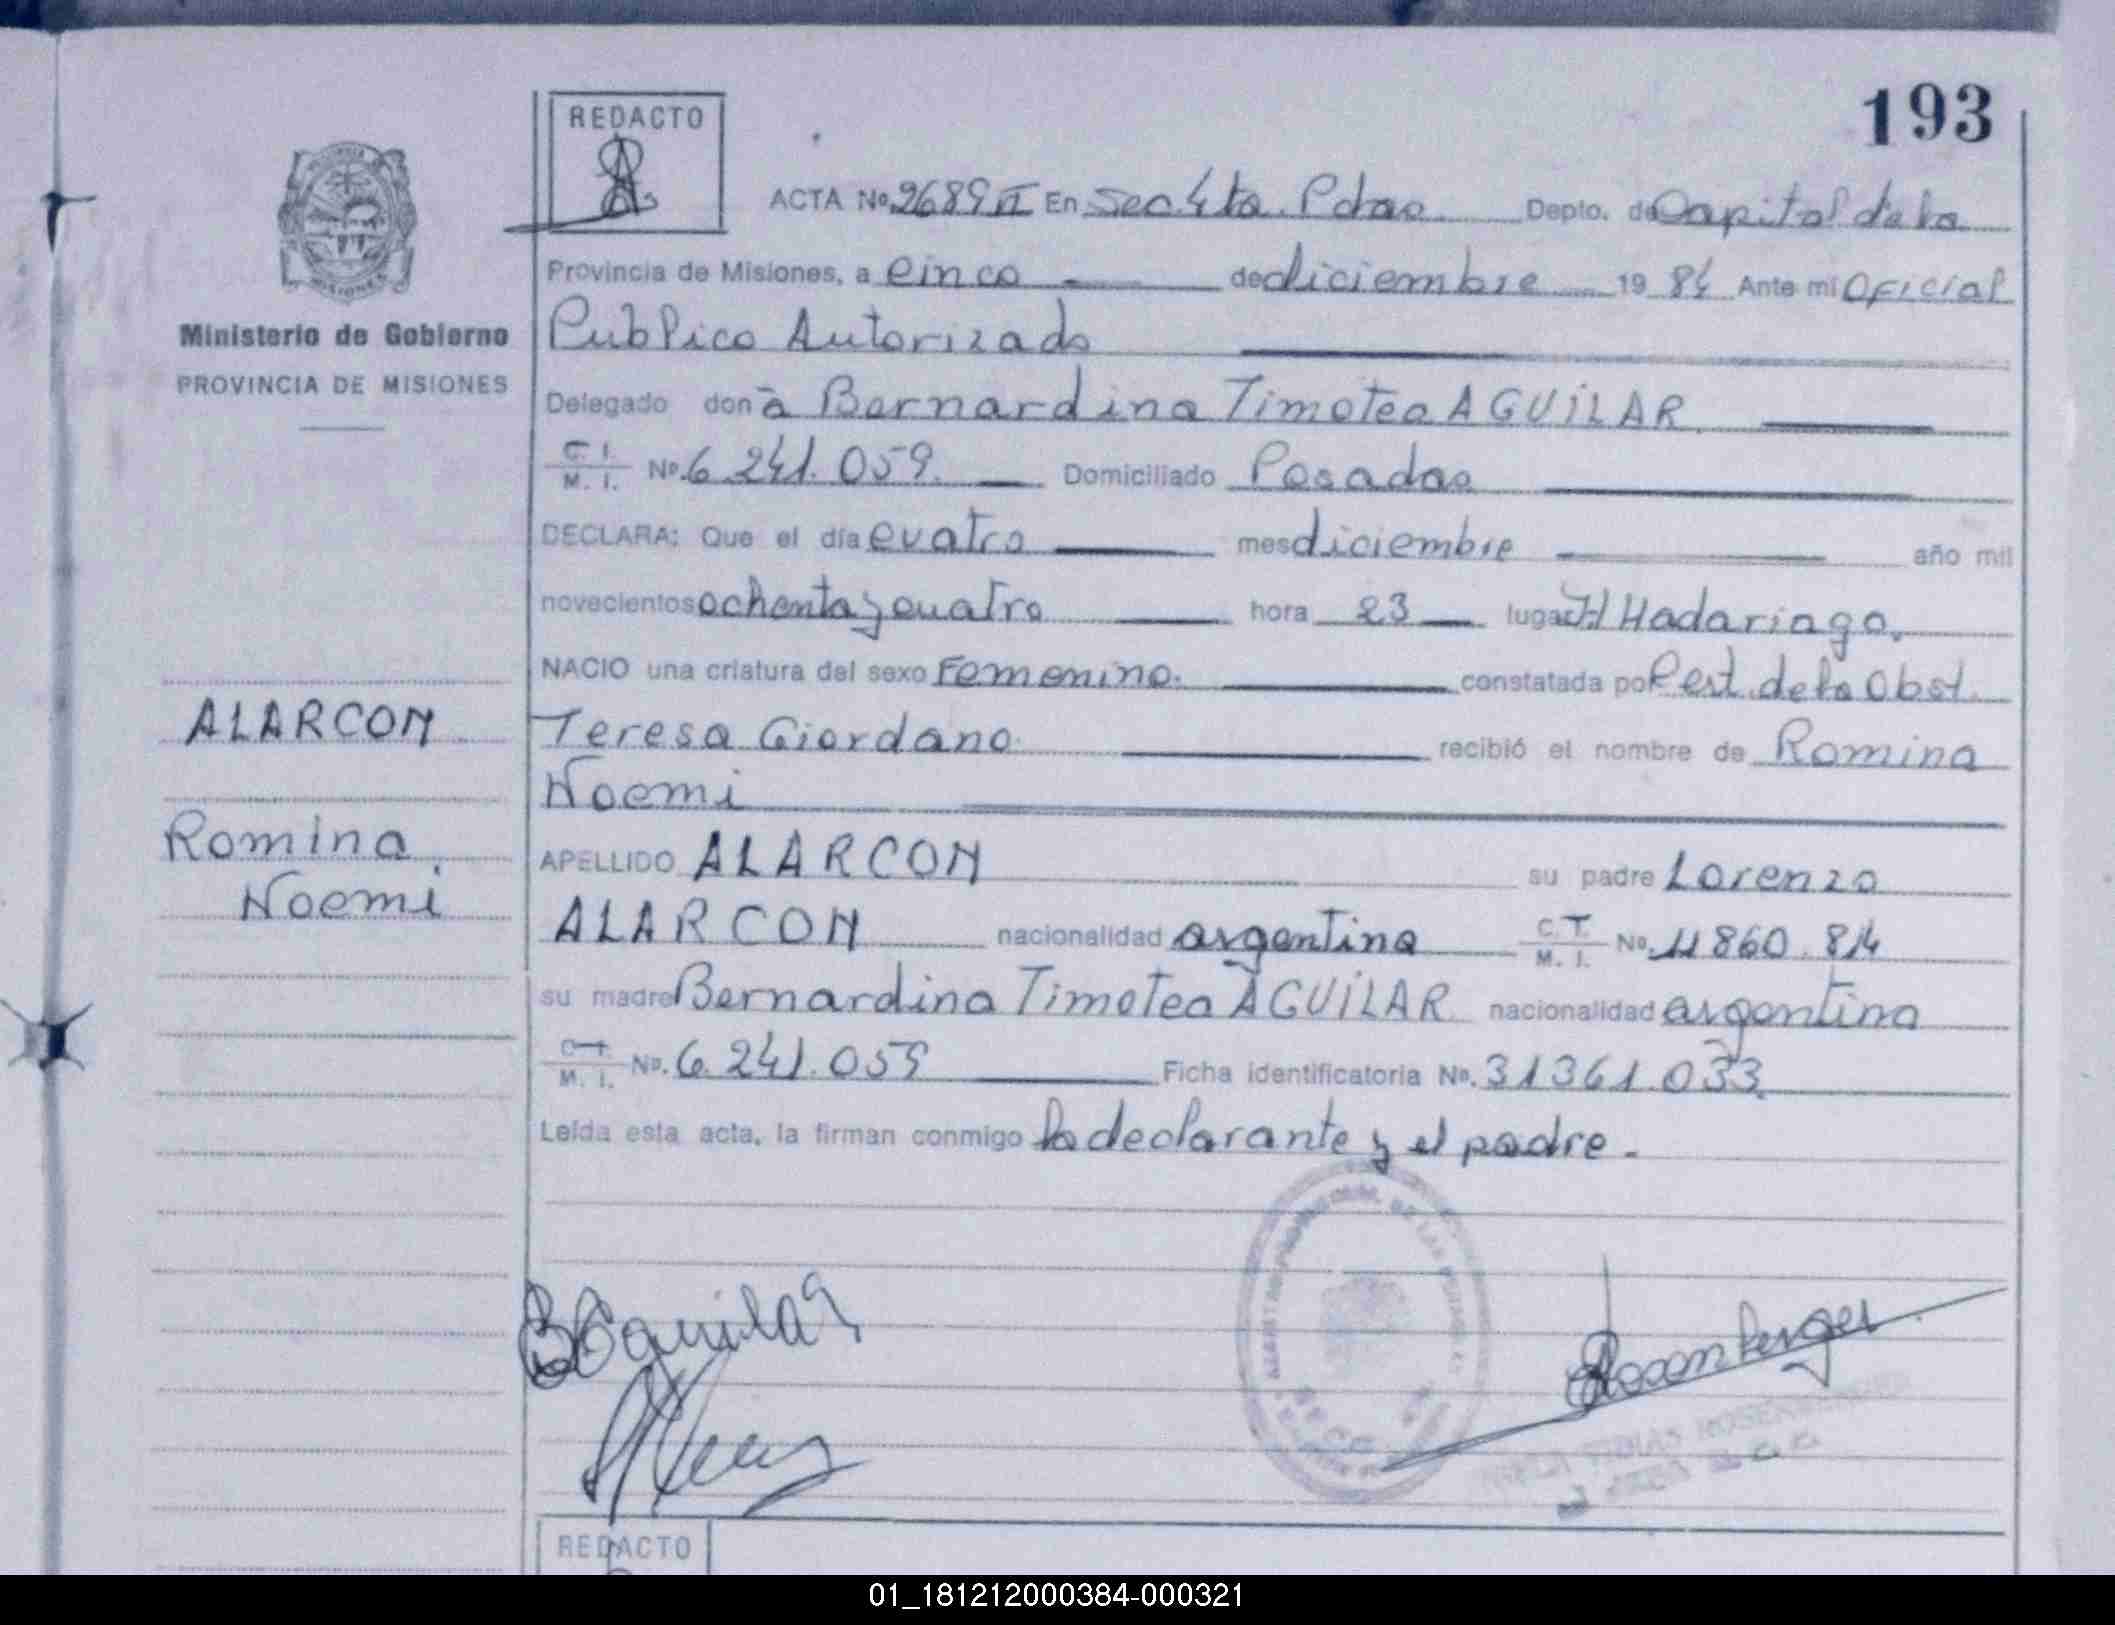 193
REDACTO
ACTA No. 2689 II En Sec. 4ta. Pdas Depto. de Capital de la
Provincia de Misiones, a cinco de diciembre 19 84 Ante mi Oficial
Publico Autorizado
Ministerio de Gobierno
PROVINCIA DE MISIONES
Delegado don a Bernardina Timotea AGUILAR
C. I. M. I. No. 6.241.059. Domiciliado Posadas
DECLARA: Que el día cuatro mes diciembre año mil
novecientos ochenta y cuatro hora 23 lugar H Madariaga.
NACIO una criatura del sexo Femenino. constatada por Cert. de la Obst.
Teresa Giordano. recibió el nombre de Romina
Noemi
APELLIDO ALARCON su padre Lorenzo
ALARCON nacionalidad argentina C. I. M. I. No. 11860.814
su madre Bernardina Timotea AGUILAR nacionalidad argentina
C. I. M. I. No. 6.241.059 Ficha identificatoria No. 31361.033.
Leída esta acta, la firman conmigo la declarante y el padre.
ALARCON
Romina
Noemi
B Aguilar
Rosenberger
ROSENBERGER
REDACTO
01_181212000384-000321